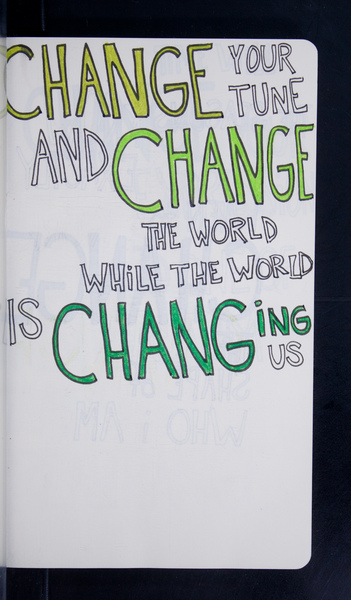 CHANGE YOUR TUNE
AND CHANGE
THE WORLD
WHiLE THE WORLD
IS CHANGiNG US